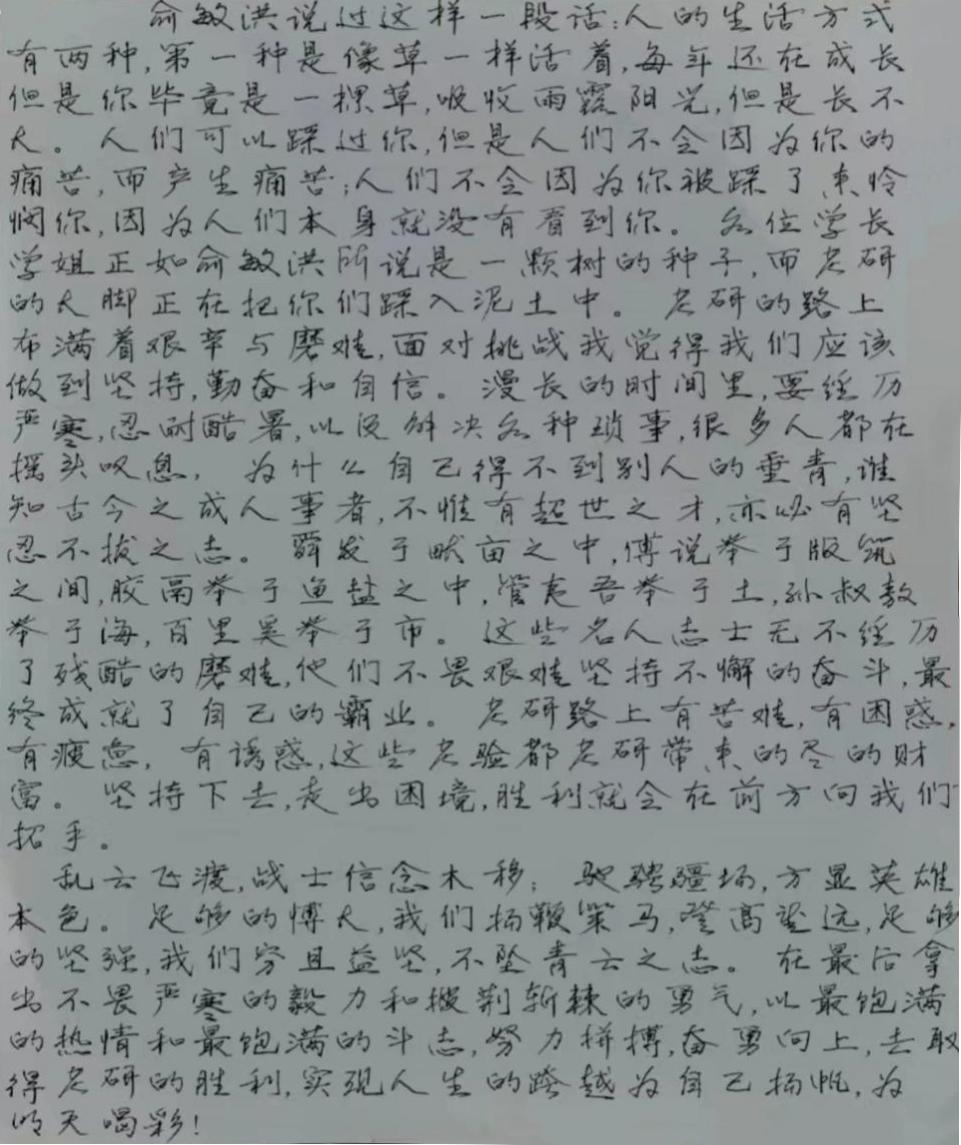 俞敏洪说过这样一段话:人的生活方式
有两种,第一种是像草一样活着,每年还在成长
但是你毕竟是一棵草,吸收雨露阳光,但是长不
大。人们可以踩过你,但是人们不会因为你的
痛苦,而产生痛苦;人们不会因为你被踩了,来怜
悯你,因为人们本身就没有看到你。各位学长
学姐正如俞敏洪所说是一颗树的种子,而考研
的大脚正在把你们踩入泥土中。考研的路上
布满着艰辛与磨难,面对挑战我觉得我们应该
做到坚持,勤奋和自信。漫长的时间里,要经历
严寒,忍耐酷署,以及解决各种琐事,很多人都在
摇头叹息,为什么自己得不到别人的垂青,谁
知古今之成人事者,不惟有超世之才,亦必有坚
忍不拔之志。舜发于畎亩之中,傅说举于版筑
之间,胶鬲举于鱼盐之中,管夷吾举于士,孙叔敖
举于海,百里奚举于市。这些名人志士无不经历
了残酷的磨难,他们不畏艰难坚持不懈的奋斗,最
终成就了自己的霸业。考研路上有苦难,有困惑,
有疲惫,有诱惑,这些考验都考研带来的尽的财
富。坚持下去,走出困境,胜利就会在前方向我们
招手。
乱云飞渡,战士信念木移;驰骋疆场,方显英雄
本色。足够的博大,我们扬鞭策马,登高望远,足够
的坚强,我们穷且益坚,不坠青云之志。在最后拿
出不畏严寒的毅力和披荆斩棘的勇气,以最饱满
的热情和最饱满的斗志,努力拼搏,奋勇向上,去取
得考研的胜利,实现人生的跨越为自己扬帆,为
明天喝彩!